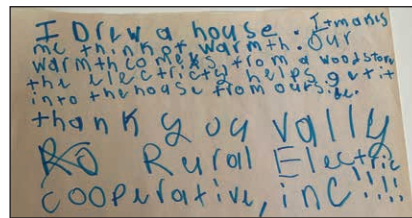 I Drew a house. It makes
me think of warmth. Our
warmth comes from a woodstove
the electricty helps get it
into the house from outside.
thank you vally
Rural Electric
cooperative, inc!!!!